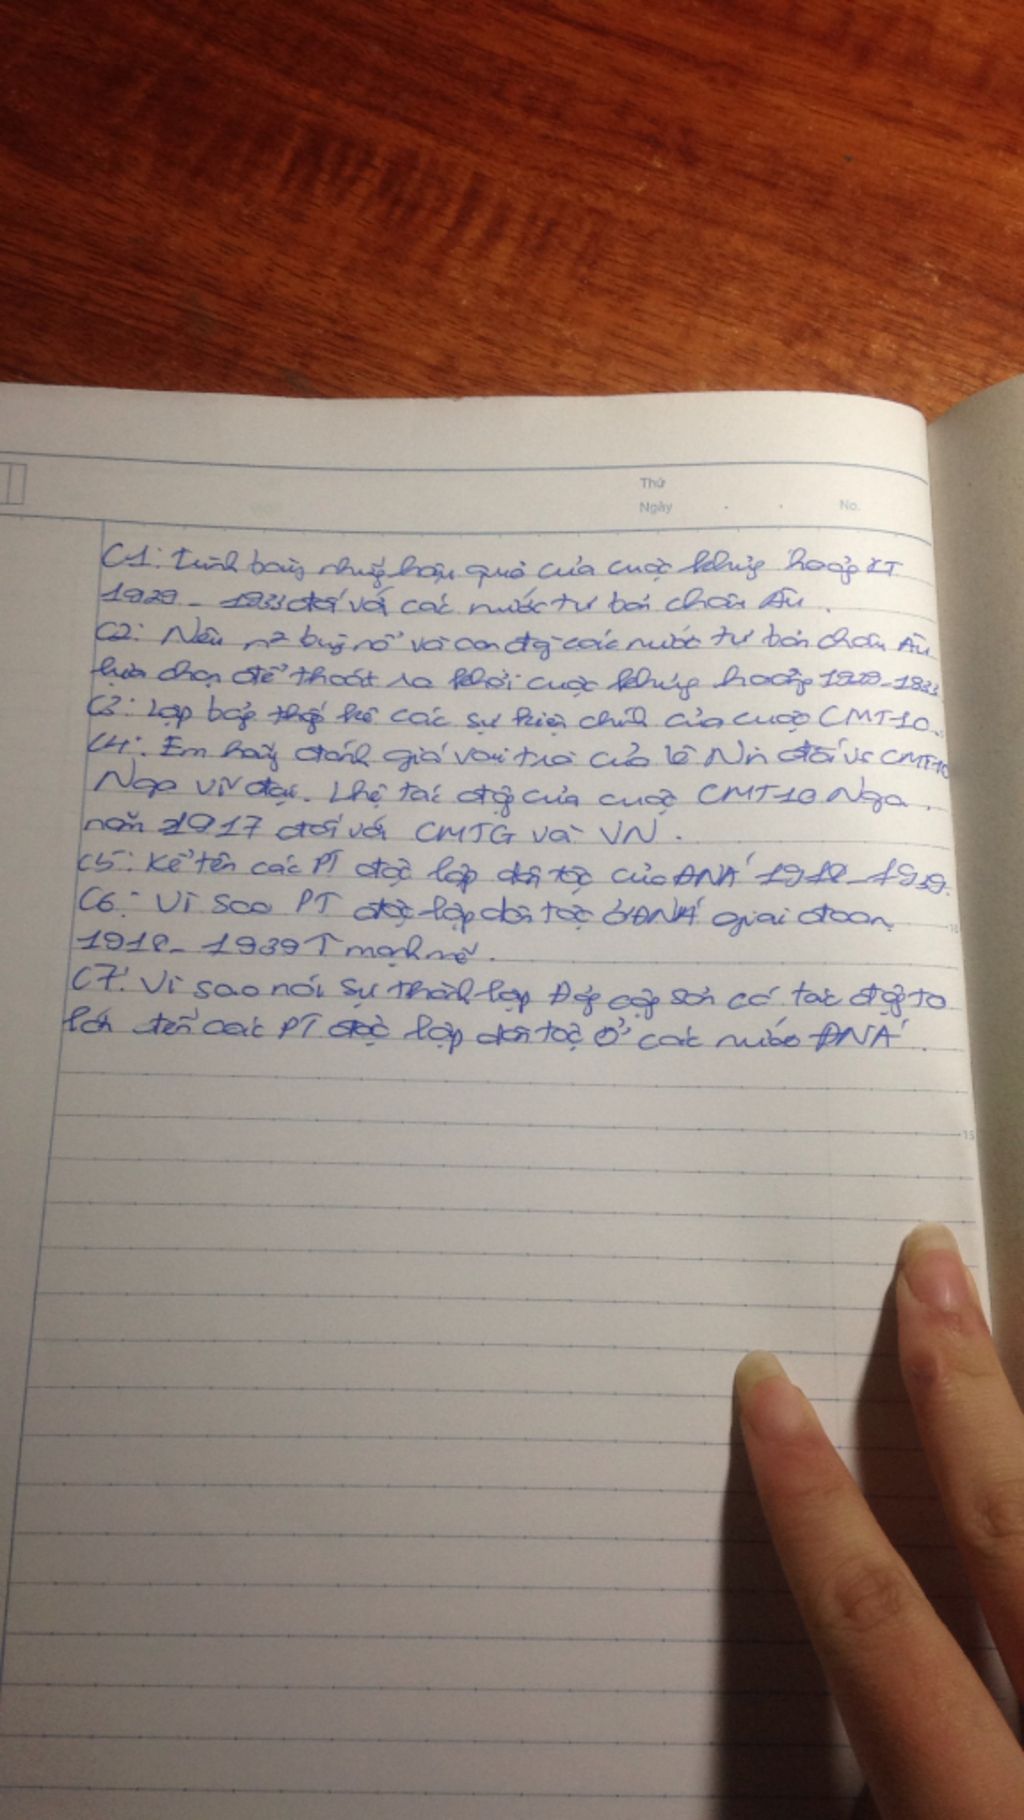 Thứ
Ngày
No.
C1: Trình bày những hậu quả của cuộc khủng hoảng KT
1929 - 1933 đối với các nước tư bản châu Âu.
C2: Nêu n² bùng nổ và con đg các nước tư bản châu Âu
lựa chọn để thoát ra khỏi cuộc khủng hoảng 1929-1933
C3: Lập bảng thống kê các sự kiện chính của cuộc CMT10.
C4: Em hãy đánh giá vai trò của Lê Nin đối vs CMT10
Nga vĩ đại. Lhệ tác động của cuộc CMT10 Nga
năm 1917 đối với CMTG và VN.
C5: Kể tên các PT độc lập dân tộc của ĐNÁ 1918-1939.
C6: Vì sao PT độc lập dân tộc ở ĐNÁ giai đoạn
1918- 1939 ↑ mạnh mẽ.
C7: Vì sao nói sự thành lập Đảng cộng sản có tác động to
lớn đến các PT độc lập dân tộc ở các nước ĐNÁ.
15